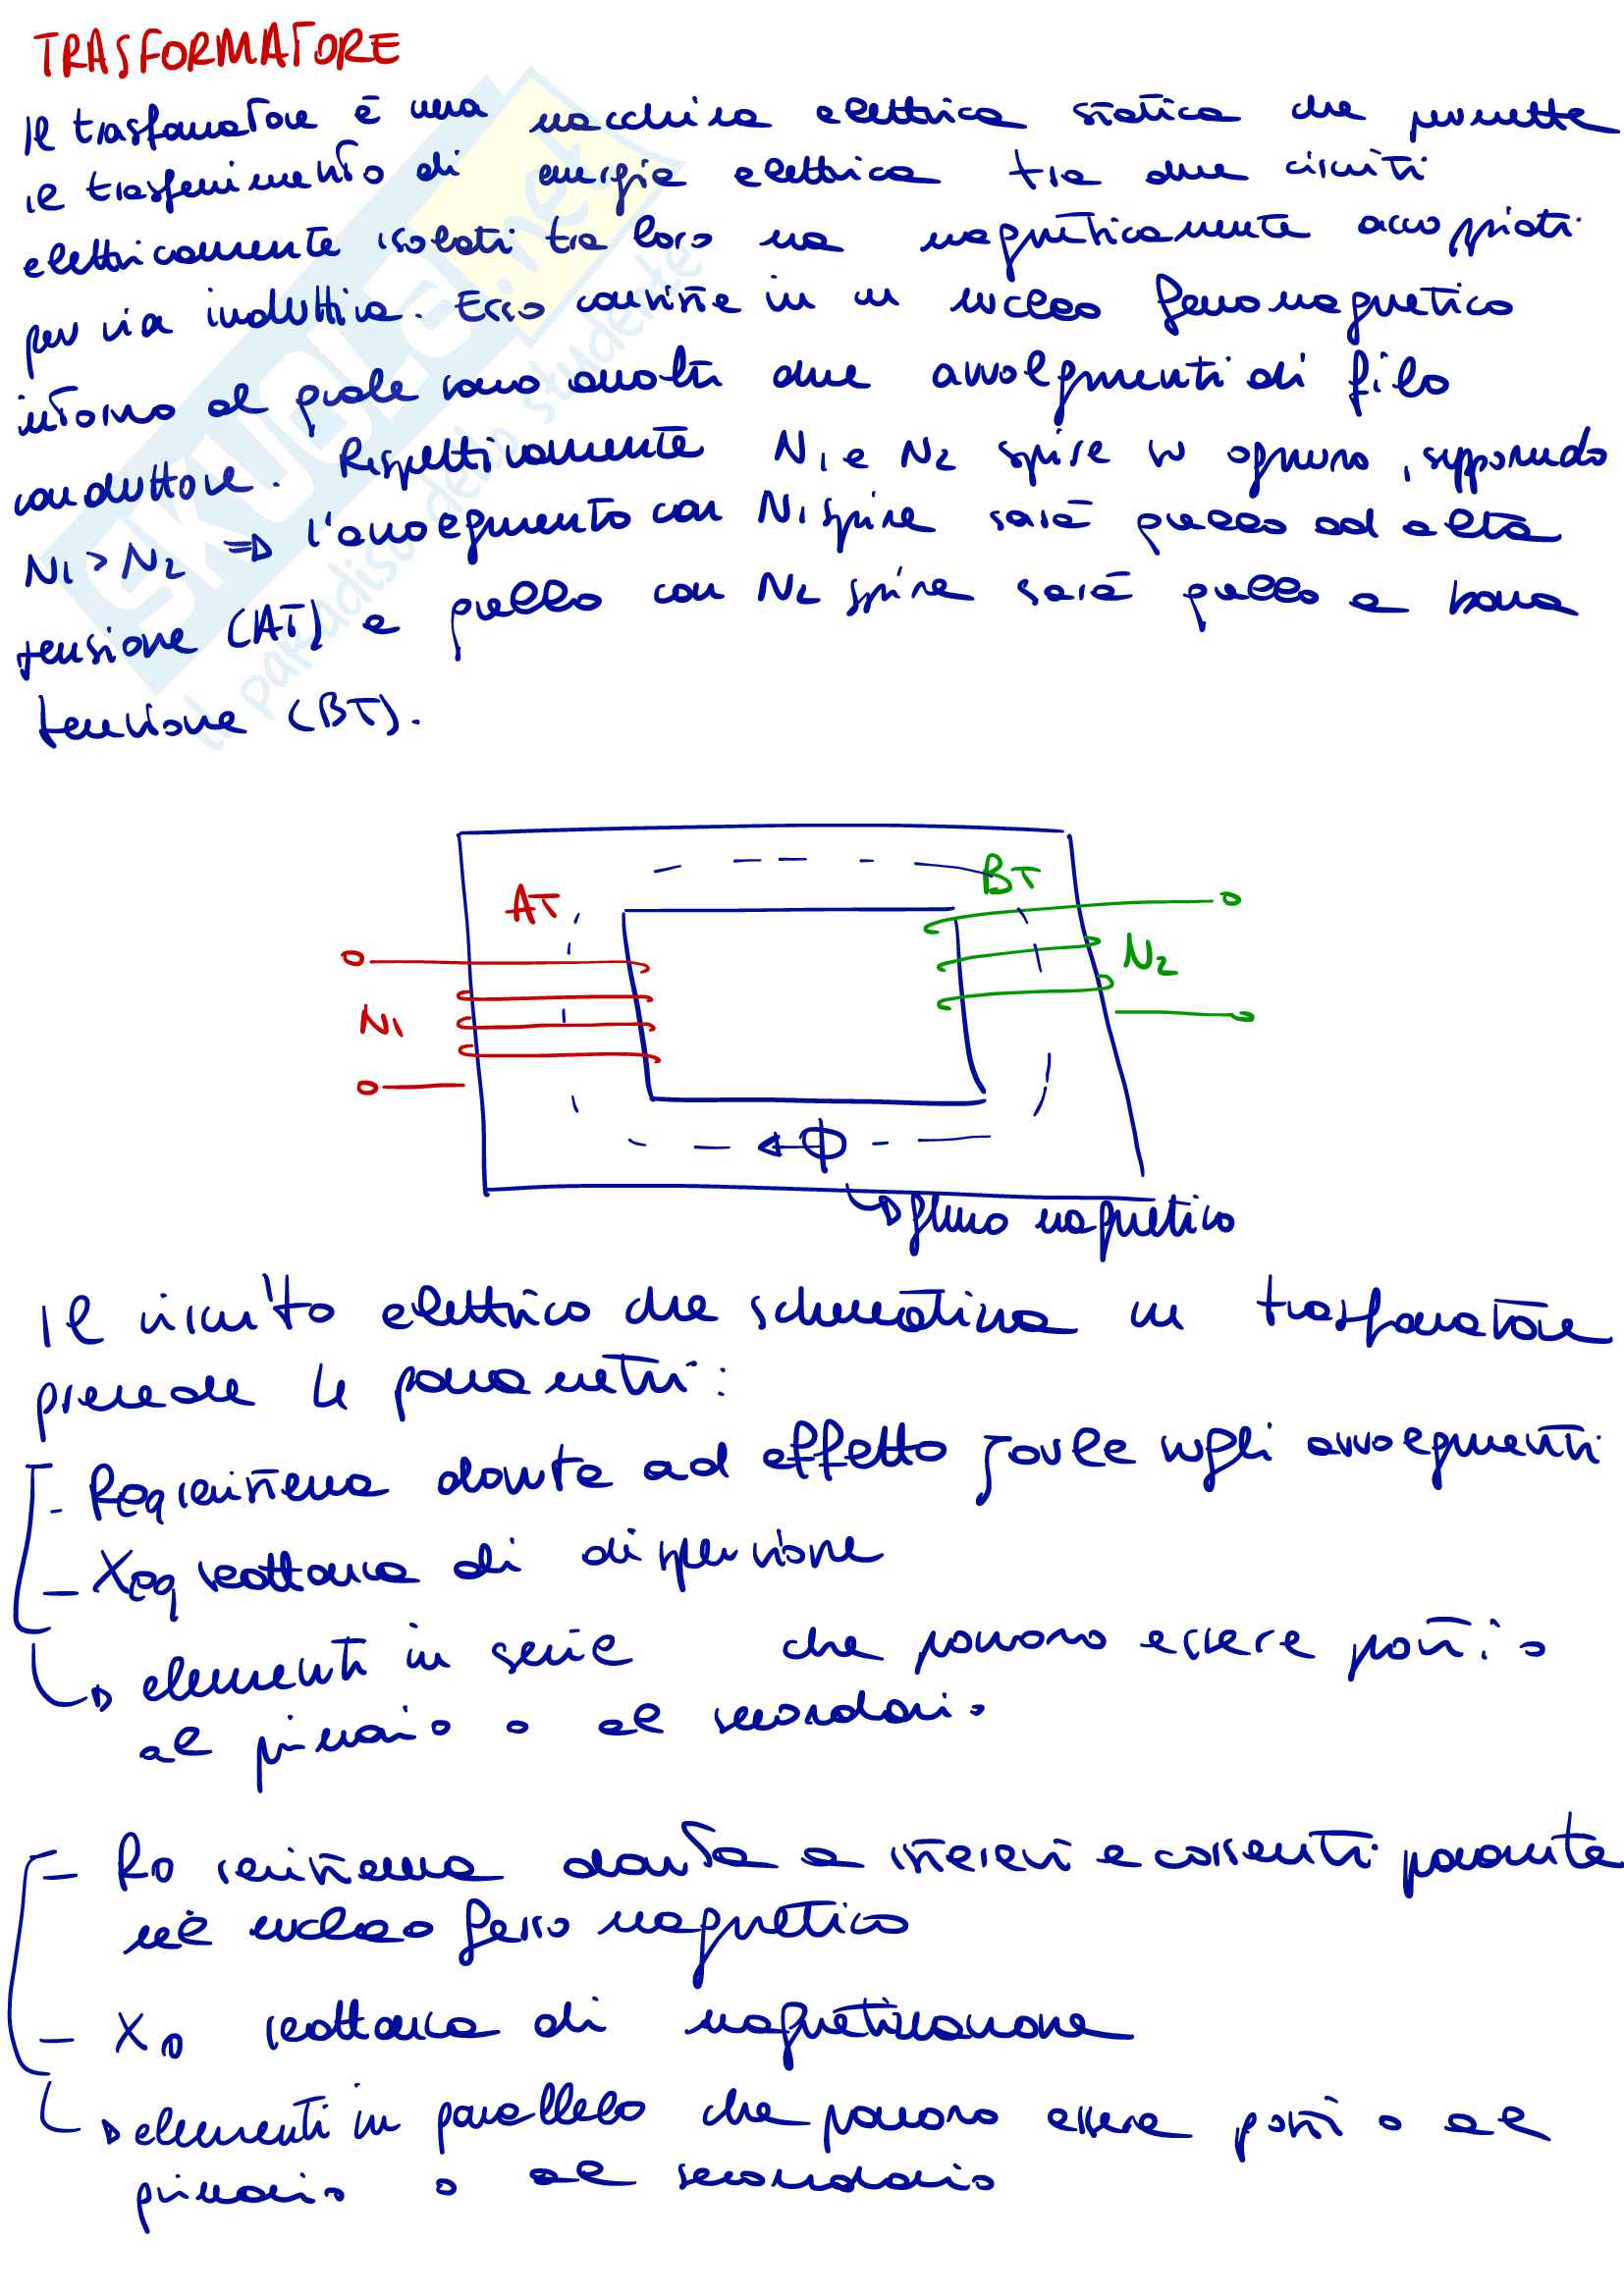 TRASFORMATORE
Il trasformatore è una macchina elettrica statica che permette
il trasferimento di energia elettrica tra due circuiti
elettricamente isolati tra loro ma magneticamente accoppiati
per via induttiva. Esso consiste in un nucleo ferromagnetico
intorno al quale sono avvolti due avvolgimenti di filo
conduttore. Rispettivamente N1 e N2 spire su ognuno, supponendo
N1 > N2 ⇒ l'avvolgimento con N1 spire sarà quello ad alta
tensione (AT) e quello con N2 spire sarà quello a bassa
tensione (BT).
SKUOLA.net
il paradiso dello studente
AT
BT
N1
N2
Φ
flusso magnetico
Il circuito elettrico che schematizza un trasformatore
prevede 4 parametri:
- Req resistenza dovuta ad effetto Joule sugli avvolgimenti
- Xeq reattanza di dispersione
elementi in serie che possono essere posti o
al primario o al secondario
- R0 resistenza dovuta a isteresi e correnti parassite
nel nucleo ferromagnetico
- X0 reattanza di magnetizzazione
elementi in parallelo che possono essere posti o al
primario o al secondario